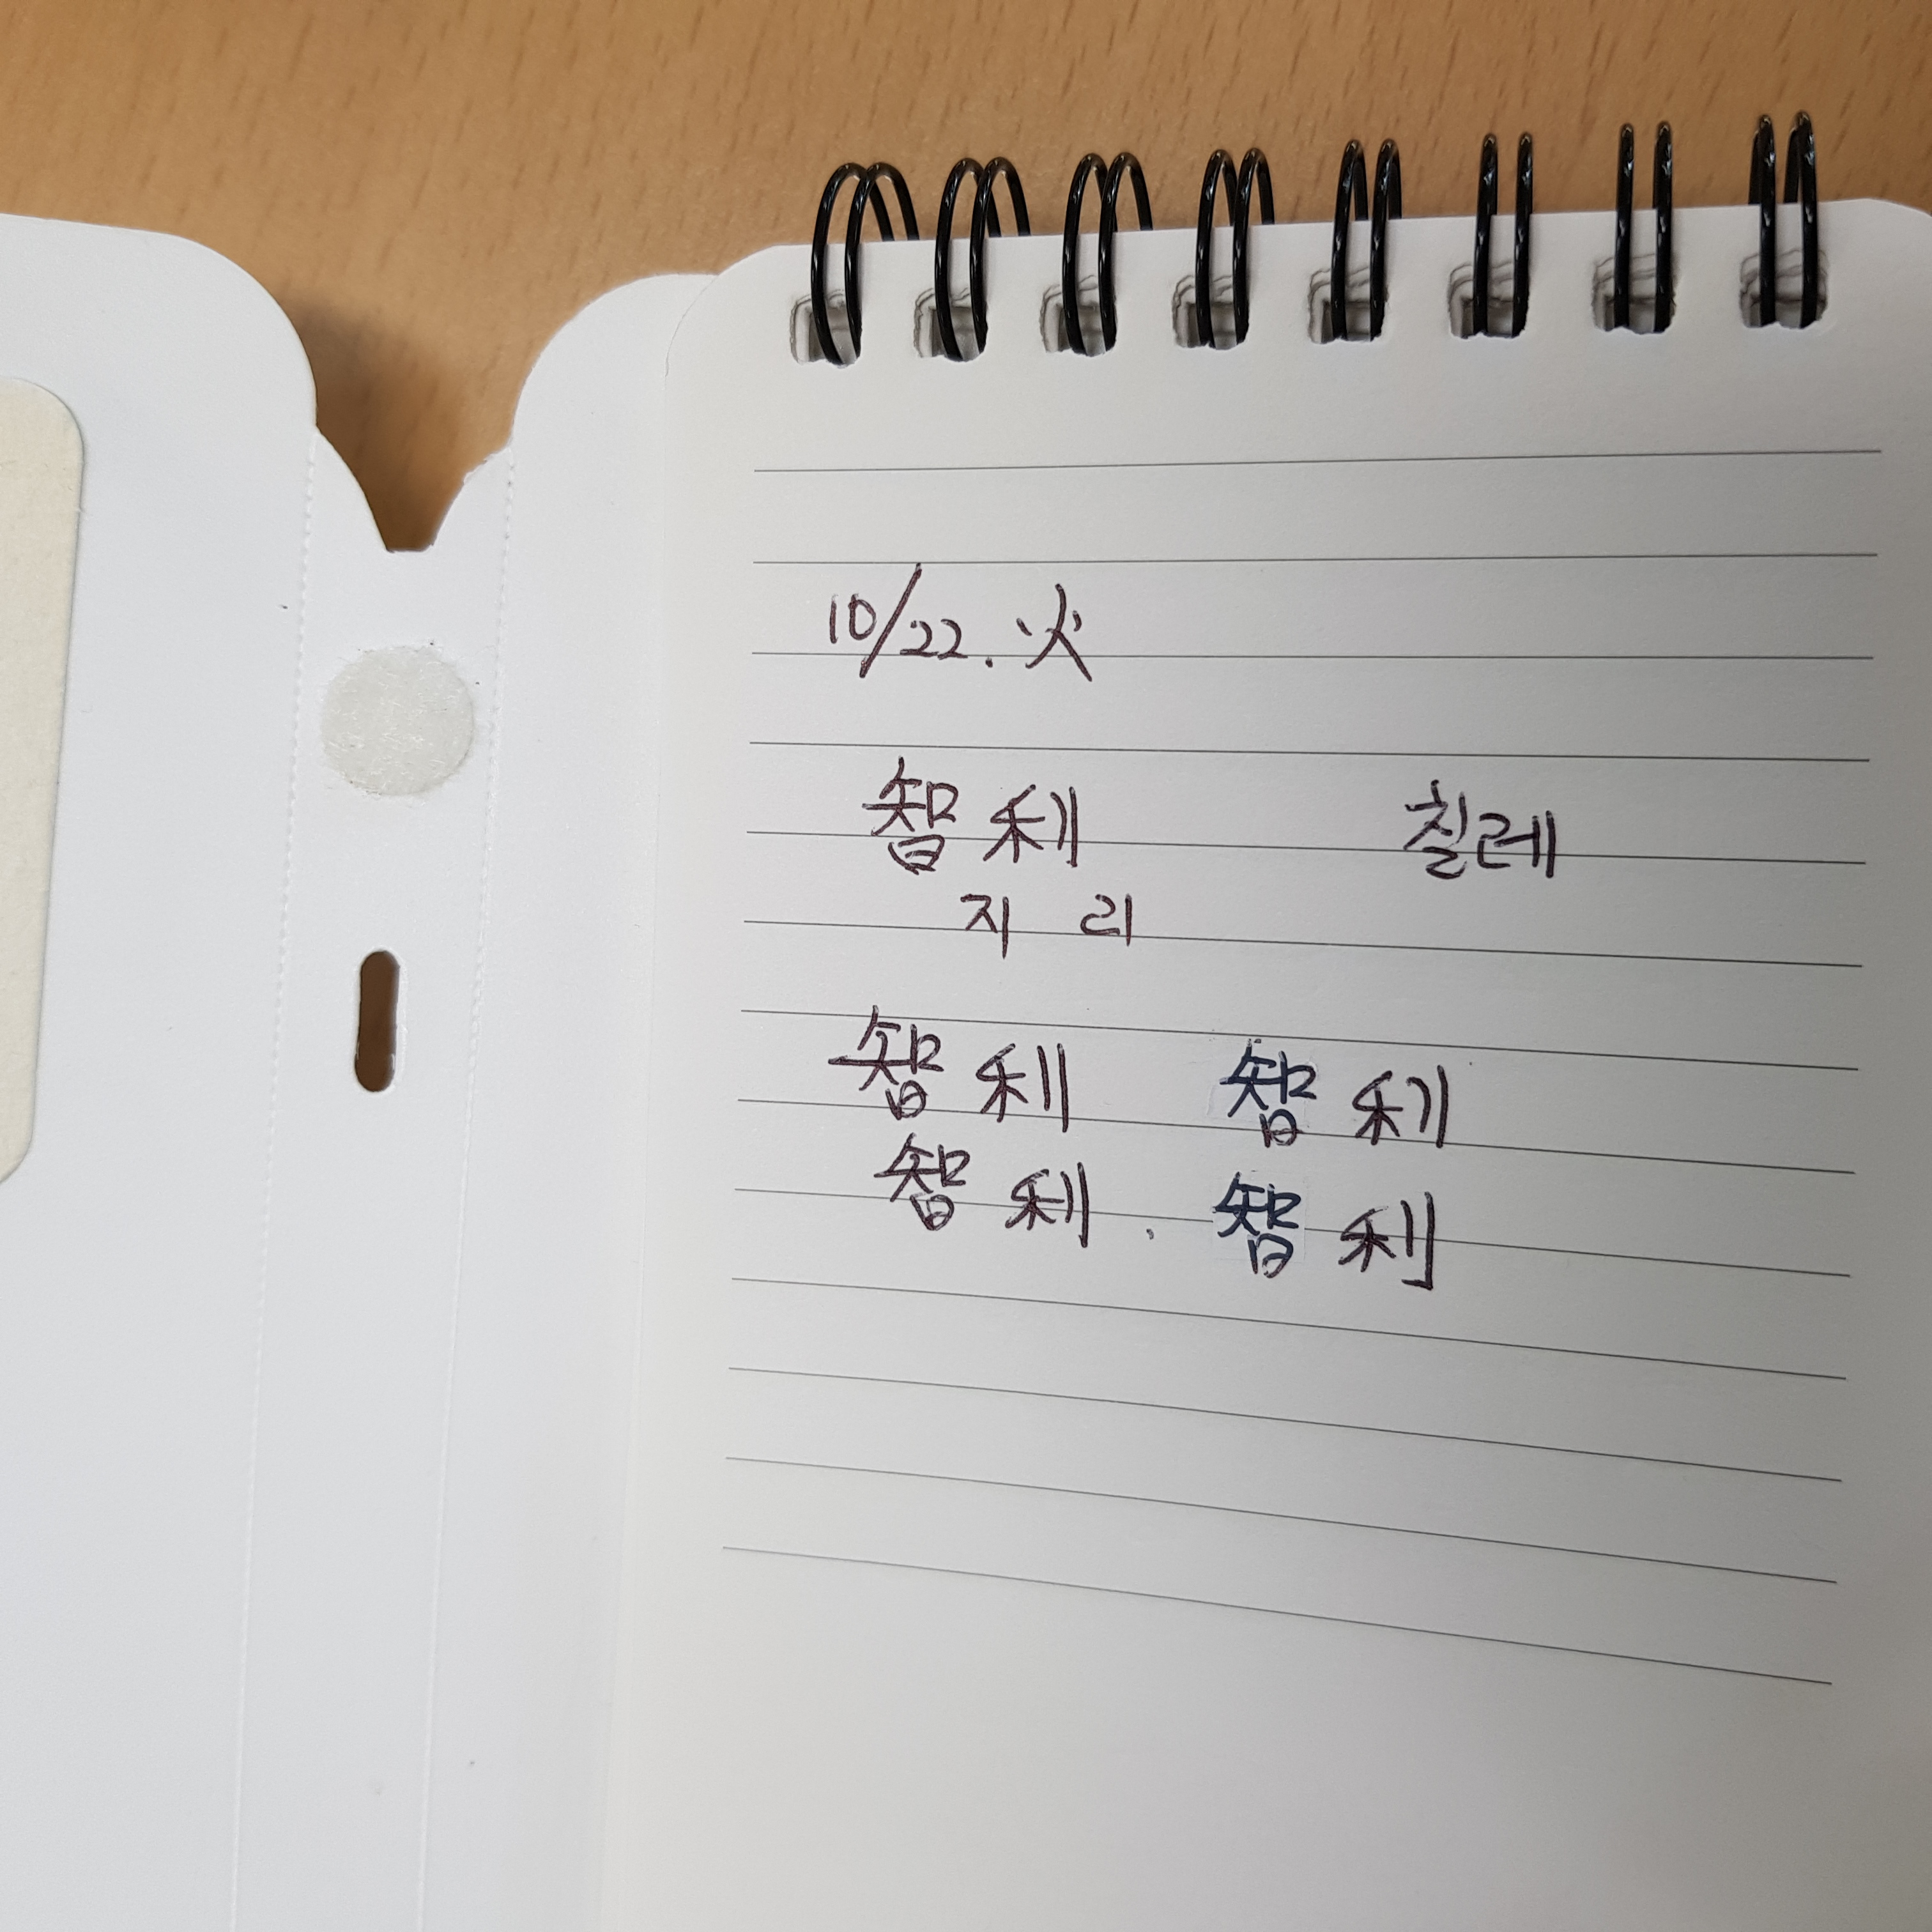 10/22. 火
智利 칠레
지 리
智利 智利
智利 . 智利